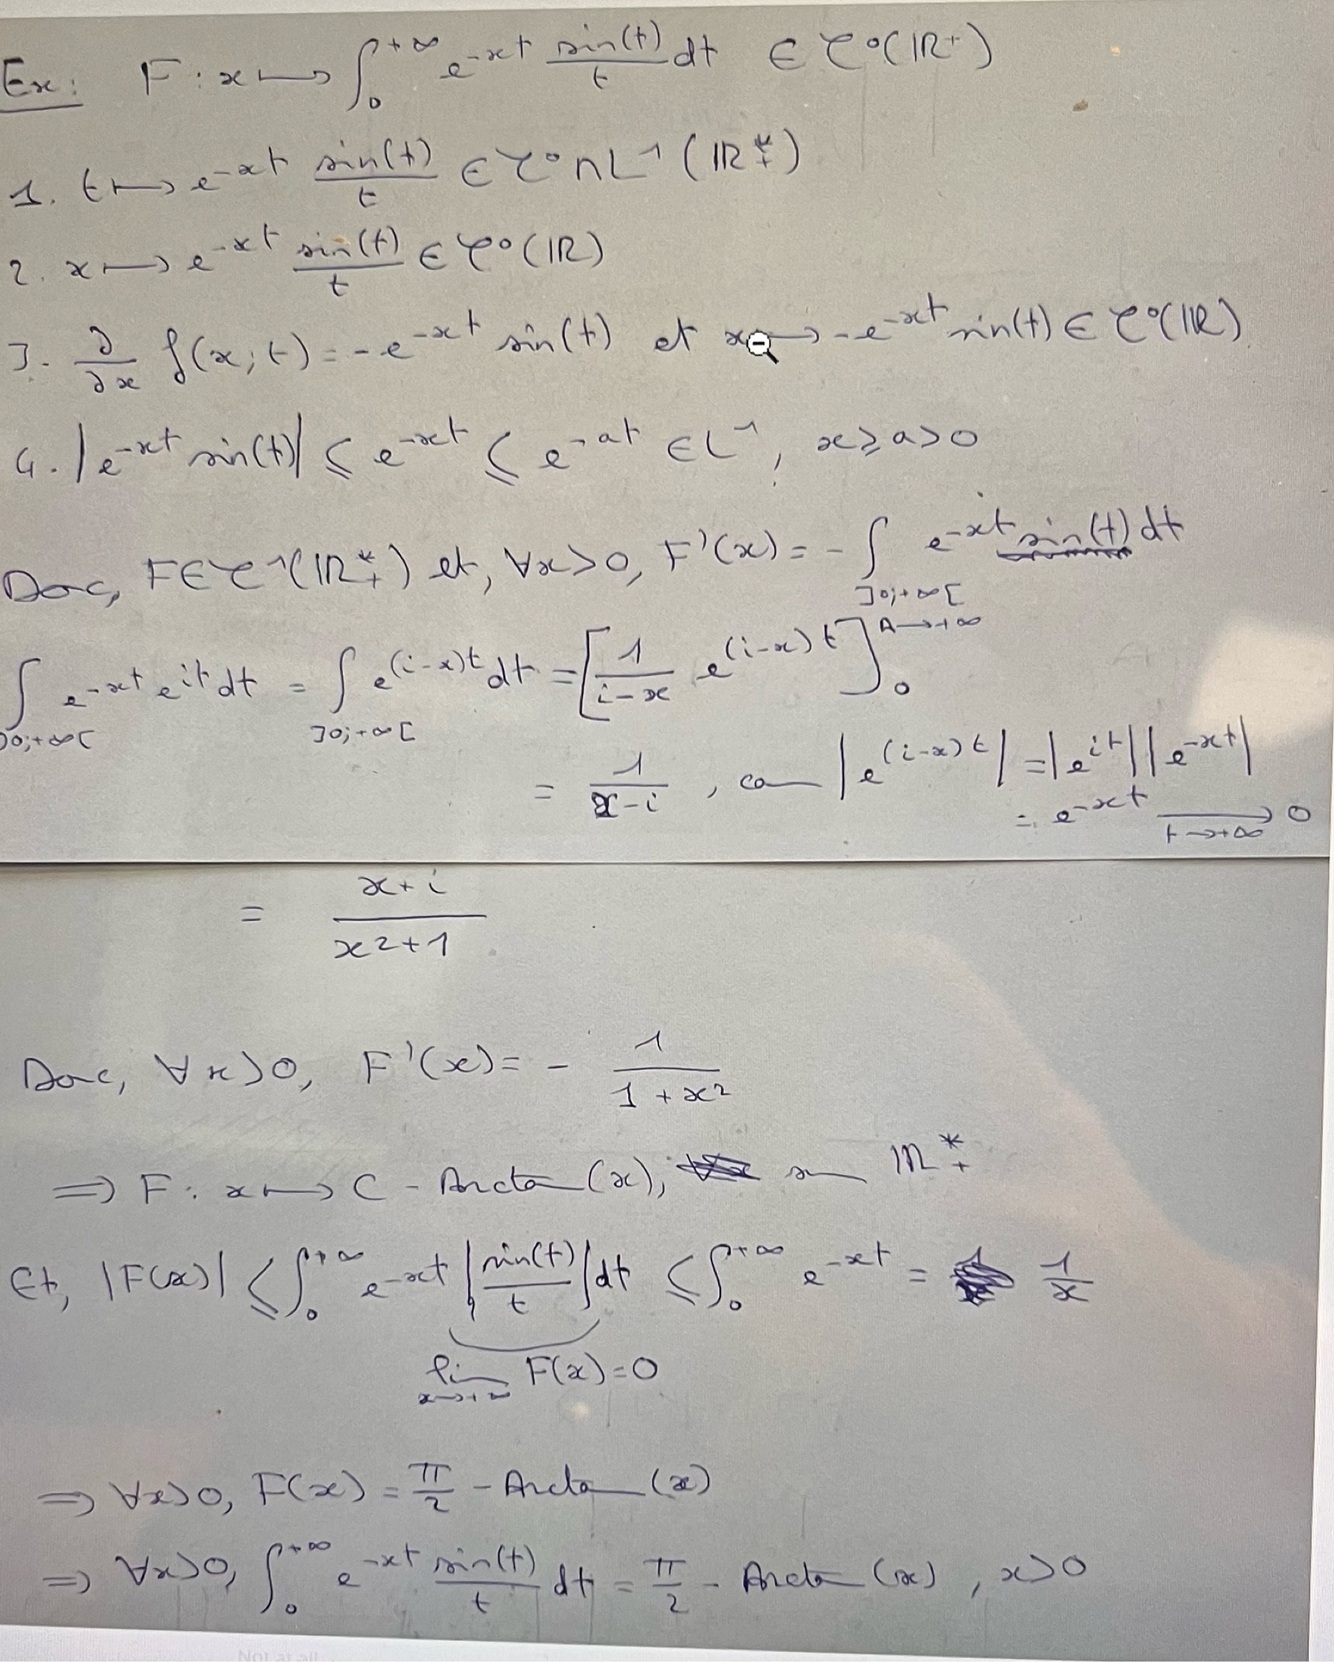 Ex: F: x ⟼ ∫₀^{+∞} e^{-xt} sin(t)/t dt ∈ 𝒞⁰(ℝ⁺)
1. t ⟼ e^{-xt} sin(t)/t ∈ 𝒞⁰∩L¹(ℝ₊*)
2. x ⟼ e^{-xt} sin(t)/t ∈ 𝒞⁰(ℝ)
3. ∂/∂x f(x;t) = -e^{-xt} sin(t) et x ⟼ -e^{-xt} sin(t) ∈ 𝒞⁰(ℝ)
4. |e^{-xt} sin(t)| ⩽ e^{-xt} ⩽ e^{-at} ∈ L¹, x ⩾ a > 0
Donc, F ∈ 𝒞¹(ℝ₊*) et, ∀x>0, F'(x) = - ∫_{]0;+∞[} e^{-xt} sin(t) dt
∫_{]0;+∞[} e^{-xt} e^{it} dt = ∫_{]0;+∞[} e^{(i-x)t} dt = [1/(i-x) e^{(i-x)t}]₀^{A→+∞}
= 1/(x-i), car |e^{(i-x)t}| = |e^{it}||e^{-xt}|
= e^{-xt} ⟶_{t→+∞} 0
= (x+i)/(x²+1)
Donc, ∀x>0, F'(x) = - 1/(1+x²)
⇒ F: x ⟼ C - Arctan(x), sur ℝ₊*
Et, |F(x)| ⩽ ∫₀^{+∞} e^{-xt} |sin(t)/t| dt ⩽ ∫₀^{+∞} e^{-xt} = 1/x
lim_{x→+∞} F(x) = 0
⇒ ∀x>0, F(x) = π/2 - Arctan(x)
⇒ ∀x>0, ∫₀^{+∞} e^{-xt} sin(t)/t dt = π/2 - Arctan(x), x>0
Not at all